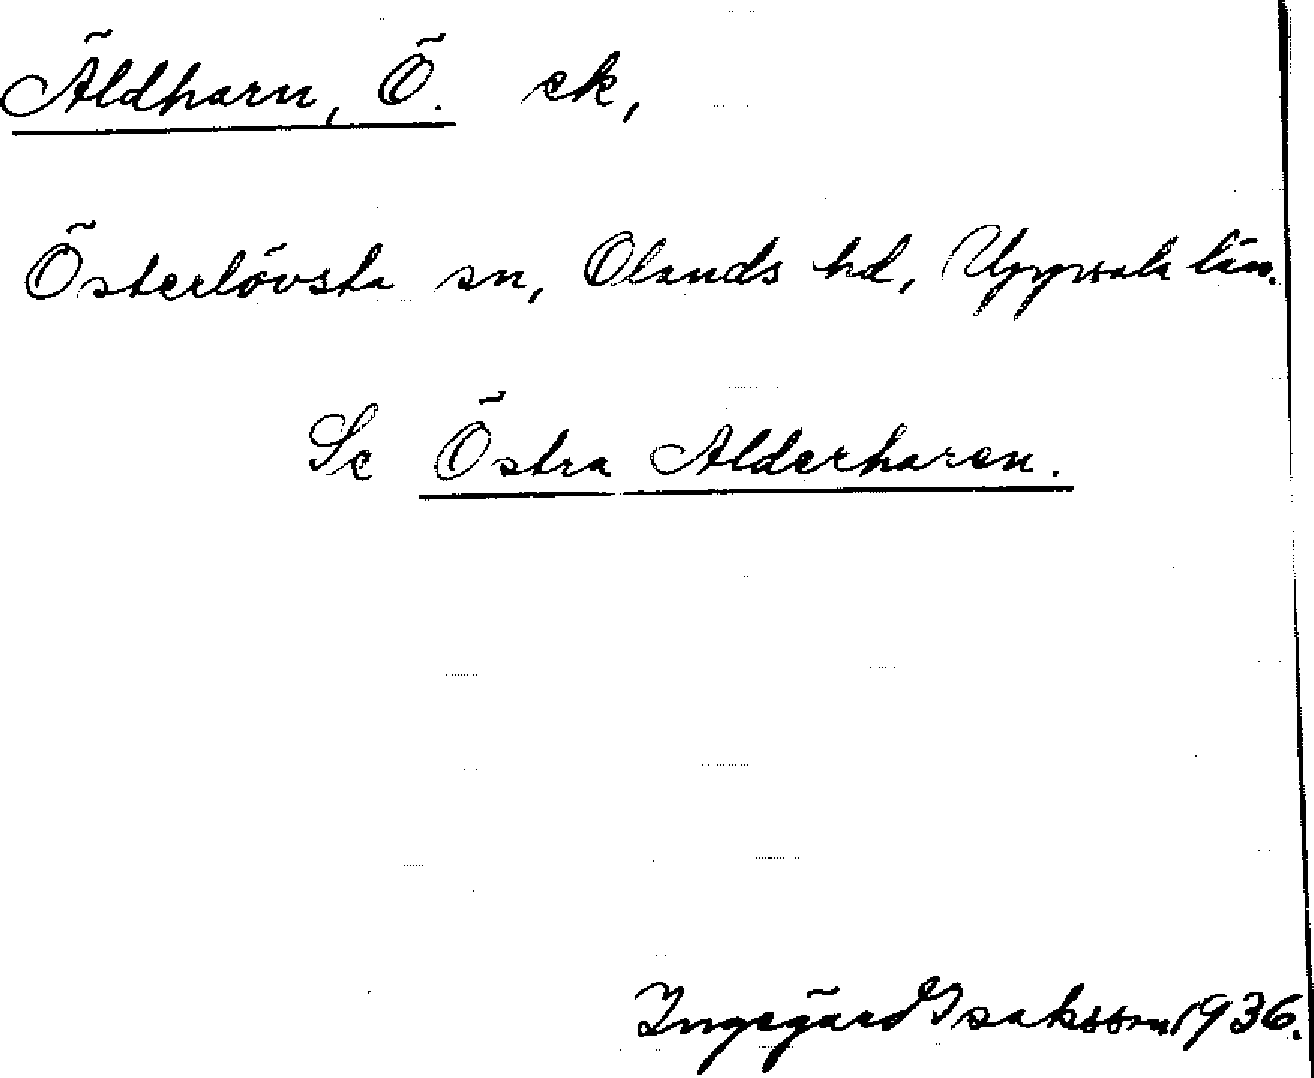 Äldharn, Ö. ek,
Österlövsta sn, Olands hd, Uppsala län.
Se Östra Alderharen.
Ingegärd Isaksson 1936.